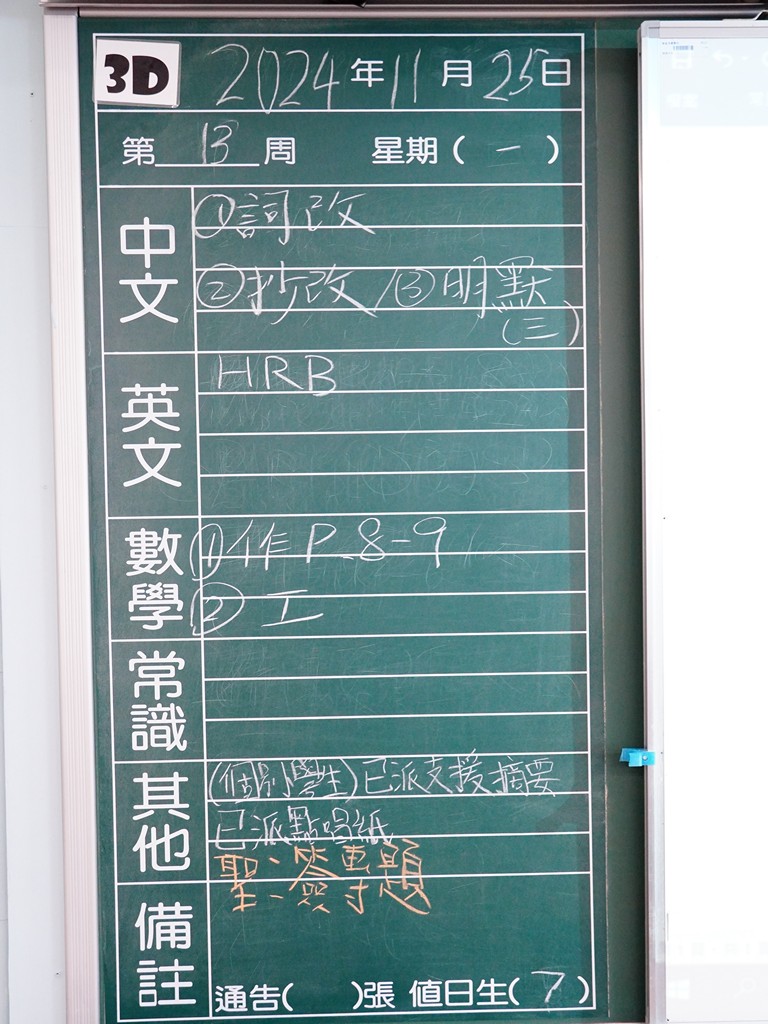 3D 2024年11月25日
第13周 星期(一)
中文
①詞改
②抄改/③明默
(三)
英文
HRB
數學
①作P.8-9
②工
常識
其他
(個別學生)已派支援摘要
已派點唱紙
聖、簽專題
備註
通告( )張 值日生(7)